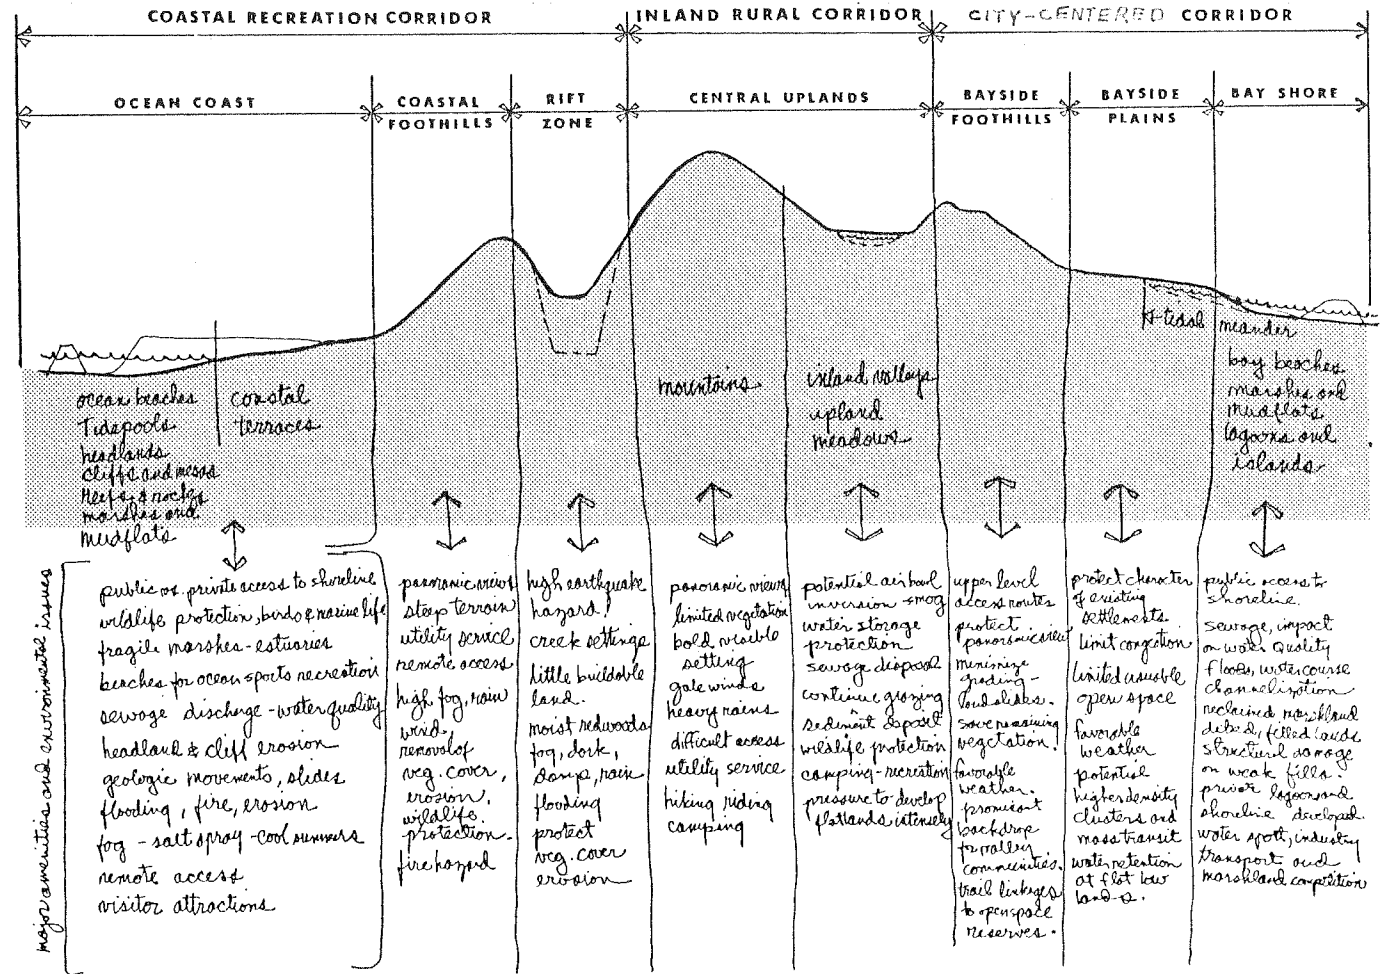 COASTAL RECREATION CORRIDOR
INLAND RURAL CORRIDOR
CITY-CENTERED CORRIDOR
OCEAN COAST
COASTAL
FOOTHILLS
RIFT
ZONE
CENTRAL UPLANDS
BAYSIDE
FOOTHILLS
BAYSIDE
PLAINS
BAY SHORE
ocean beaches
Tidepools
headlands
cliffs and mesas
Reefs & rocks
marshes and
mudflats
coastal
terraces
mountains
inland valleys
upland
meadows
tidal meander
bay beaches
marshes and
mudflats
lagoons and
islands
major amenities and environmental issues
public vs. private access to shoreline
wildlife protection, birds & marine life
fragile marshes - estuaries
beaches for ocean sports recreation
sewage discharge - water quality
headland & cliff erosion
geologic movements, slides
flooding, fire, erosion
fog - salt spray - cool summers
remote access
visitor attractions
panoramic views
steep terrain
utility service
remote access
high fog, rain
wind.
removal of
veg. cover,
erosion.
wildlife.
protection.
fire hazard
high earthquake
hazard!
creek settings
little buildable
land.
moist redwoods
fog, dark,
damp, rain
flooding
protect
veg. cover
erosion
panoramic views
limited vegetation
bold visible
setting
gale winds
heavy rains
difficult access
utility service
hiking riding
camping
potential air bowl
inversion - smog
water storage
protection
sewage disposal
continue grazing
sediment deposit
wildlife protection
camping - recreation
pressure to develop
flatlands intensely
upper level
access routes
protect
panoramic view
minimize
grading -
landslides.
save remaining
vegetation.
favorable
weather.
prominent
backdrop
for valley
communities.
trail linkages
to openspace
reserves.
protect character
of existing
settlements.
limit congestion
limited usable
open space
favorable
weather
potential
higher density
clusters and
mass transit
water retention
at flat low
lands.
public access to
shoreline.
sewage, impact
on water quality
floods, watercourse
channelization
reclaimed marshland
diked, filled lands
structural damage
on weak fills.
prior lagoon and
shoreline developed.
water sports, industry
transport and
marshland competition